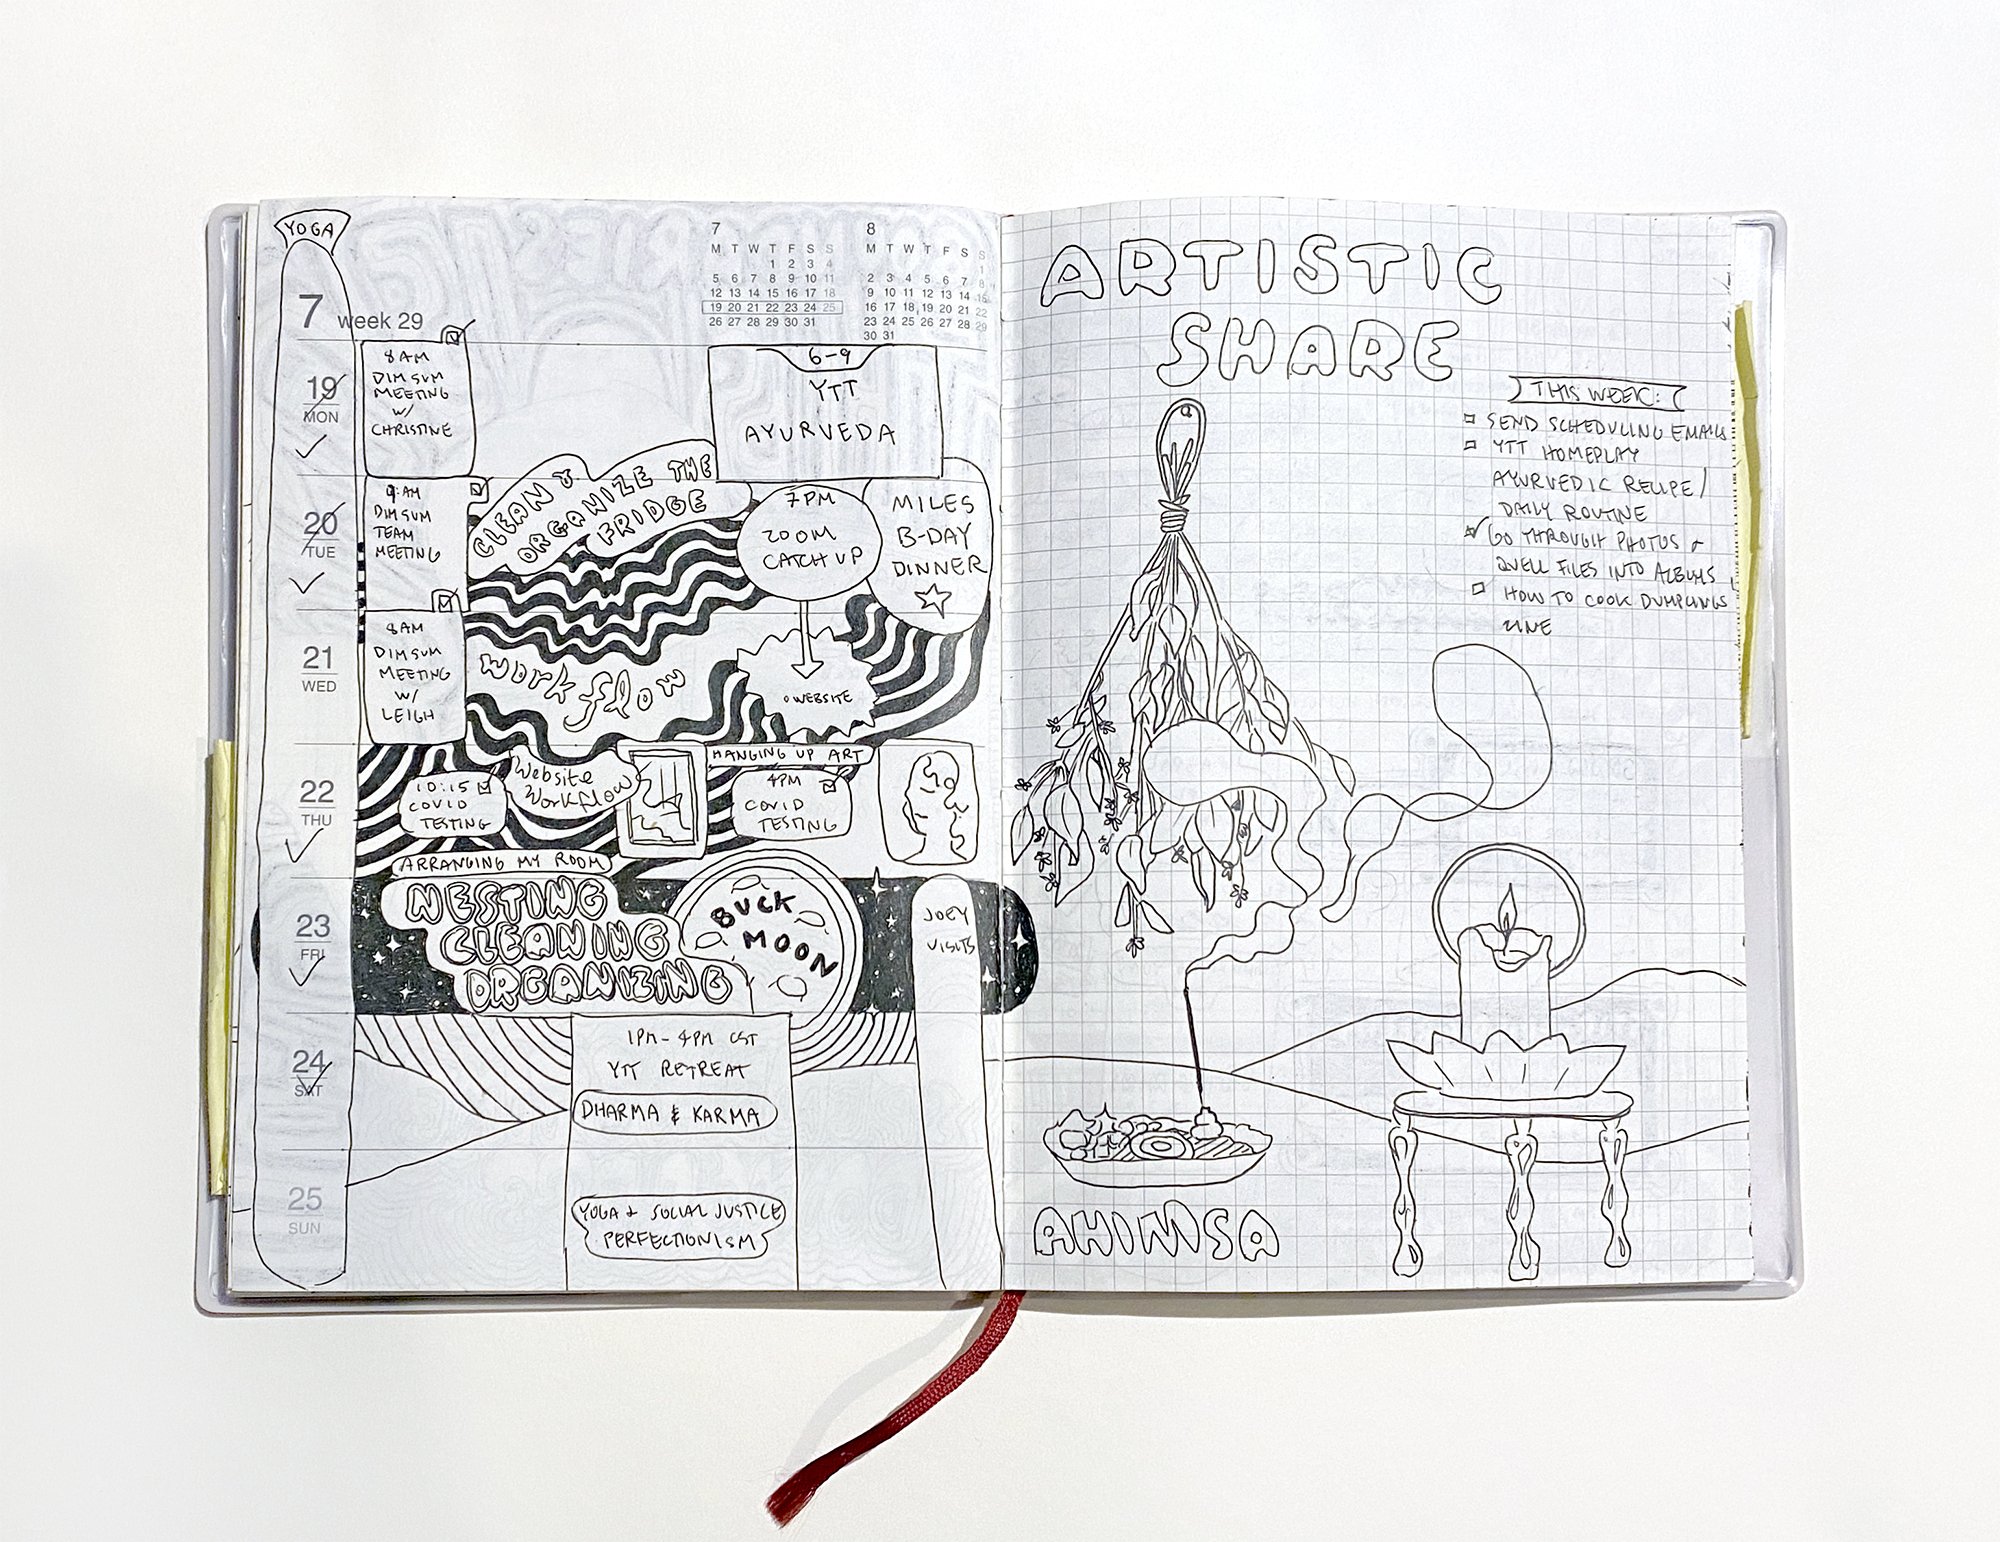 YOGA
7 week 29
7
M T W T F S S
1 2 3 4
5 6 7 8 9 10 11
12 13 14 15 16 17 18
19 20 21 22 23 24 25
26 27 28 29 30 31
8
M T W T F S S
1
2 3 4 5 6 7 8
9 10 11 12 13 14 15
16 17 18 19 20 21 22
23 24 25 26 27 28 29
30 31
19
MON
8AM
DIMSUM
MEETING
W/
CHRISTINE
6-9
YTT
AYURVEDA
20
TUE
9:AM
DIMSUM
TEAM
MEETING
CLEAN &
ORGANIZE THE
FRIDGE
7PM
ZOOM
CATCH UP
MILES
B-DAY
DINNER
21
WED
8AM
DIMSUM
MEETING
W/
LEIGH
work flow
WEBSITE
22
THU
10:15
COVID
TESTING
Website
Workflow
HANGING UP ART
4PM
COVID
TESTING
ARRANGING MY ROOM
23
FRI
NESTING
CLEANING
ORGANIZING
BUCK
MOON
JOEY
VISITS
24
SAT
1PM-4PM CST
YTT RETREAT
DHARMA & KARMA
25
SUN
YOGA + SOCIAL JUSTICE
PERFECTIONISM
ARTISTIC
SHARE
THIS WEEK:
SEND SCHEDULING EMAILS
YTT HOMEPLAY
AYURVEDIC RECIPE/
DAILY ROUTINE
GO THROUGH PHOTOS &
FILES INTO ALBUMS
HOW TO COOK DUMPLINGS
ZINE
AHIMSA